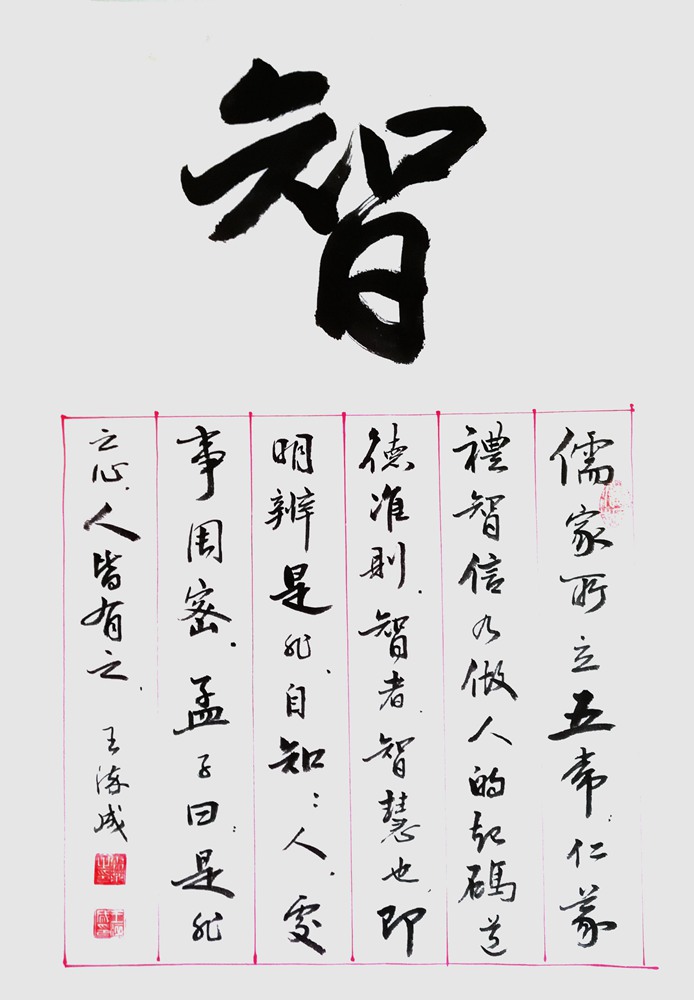 智
儒家所立五常:仁義
禮智信乃做人的起碼道
德准則.智者.智慧也.即
明辨是非.自知:人.處
事周密.孟子曰:是非
之心.人皆有之.
王 成